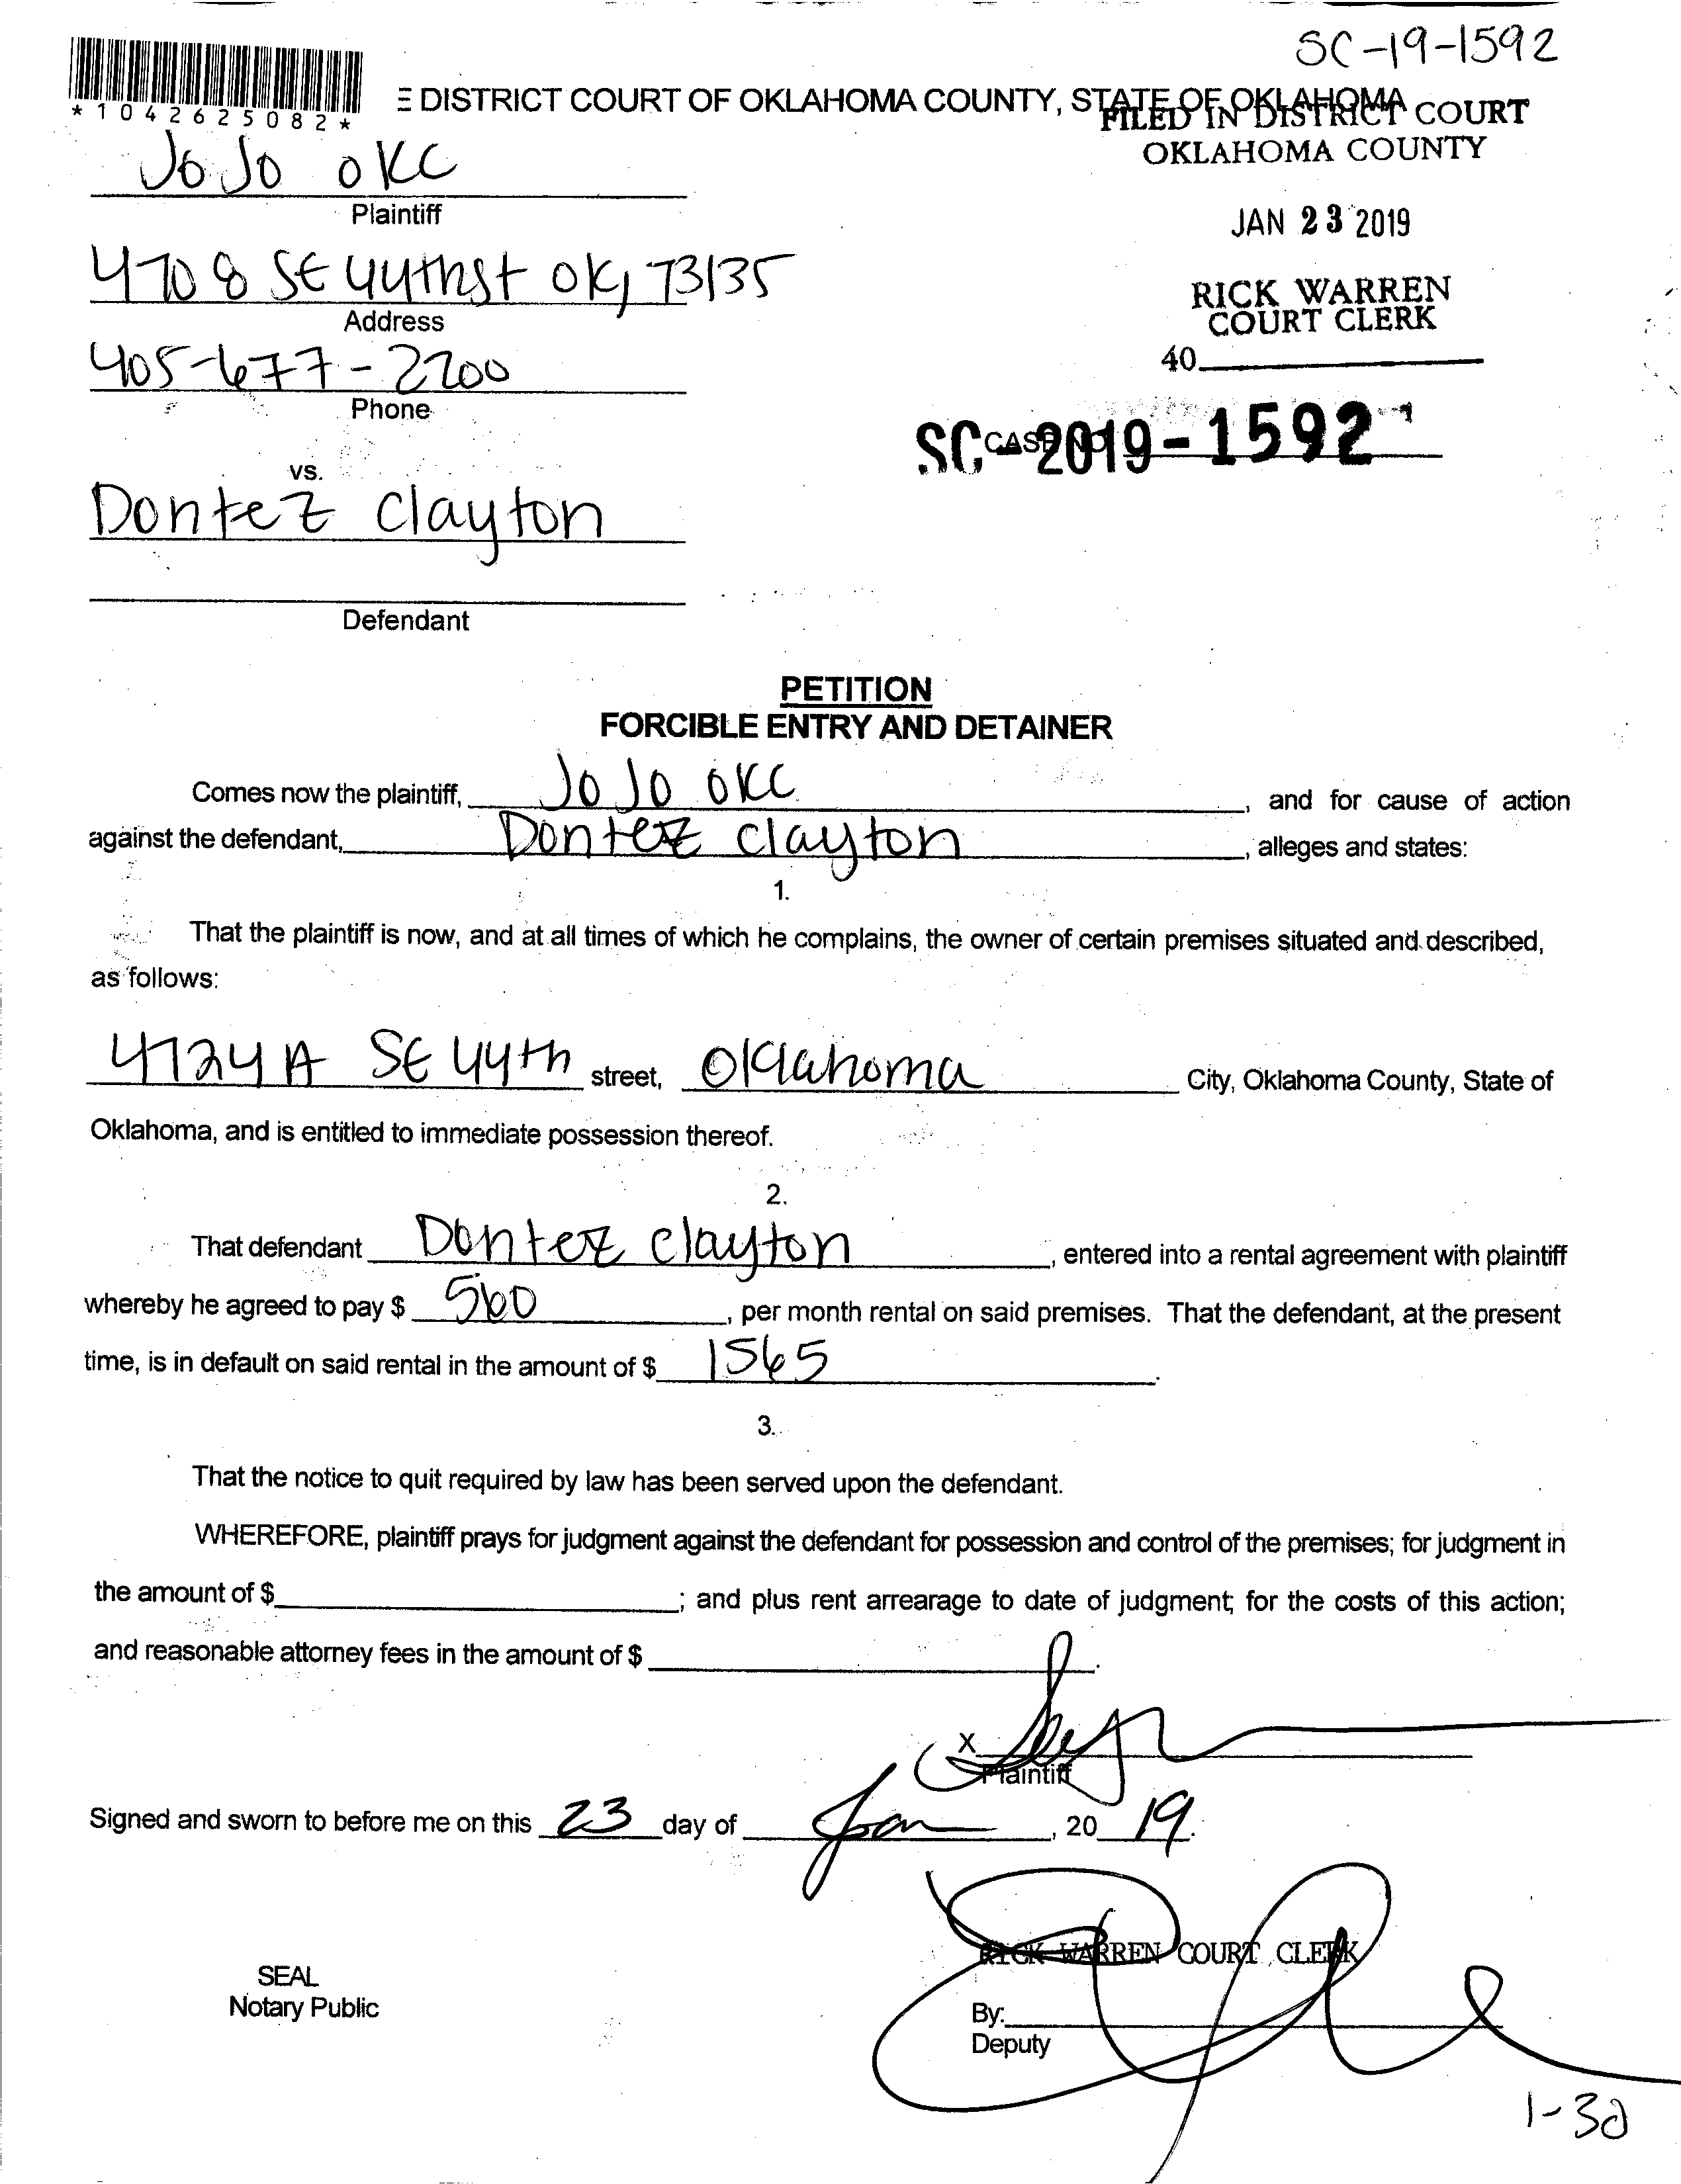 SC-19-1592
*1042625082*
E DISTRICT COURT OF OKLAHOMA COUNTY, STATE OF OKLAHOMA
FILED IN DISTRICT COURT
OKLAHOMA COUNTY
JoJo OKC
Plaintiff
JAN 23 2019
4708 SE 44th st OK, 73135
Address
RICK WARREN
COURT CLERK
405-677-2200
Phone
40
SC-2019-1592
CASE NO.
vs.
Dontez Clayton
Defendant
PETITION
FORCIBLE ENTRY AND DETAINER
Comes now the plaintiff, JoJo OKC, and for cause of action
against the defendant, Dontez Clayton, alleges and states:
1.
That the plaintiff is now, and at all times of which he complains, the owner of certain premises situated and described,
as follows:
4724 A SE 44th street, Oklahoma City, Oklahoma County, State of
Oklahoma, and is entitled to immediate possession thereof.
2.
That defendant Dontez Clayton, entered into a rental agreement with plaintiff
whereby he agreed to pay $ 560, per month rental on said premises. That the defendant, at the present
time, is in default on said rental in the amount of $ 1565.
3.
That the notice to quit required by law has been served upon the defendant.
WHEREFORE, plaintiff prays for judgment against the defendant for possession and control of the premises; for judgment in
the amount of $ ; and plus rent arrearage to date of judgment; for the costs of this action;
and reasonable attorney fees in the amount of $ .
X
Plaintiff
Signed and sworn to before me on this 23 day of Jan, 2019.
RICK WARREN COURT CLERK
SEAL
Notary Public
By:
Deputy
1-30